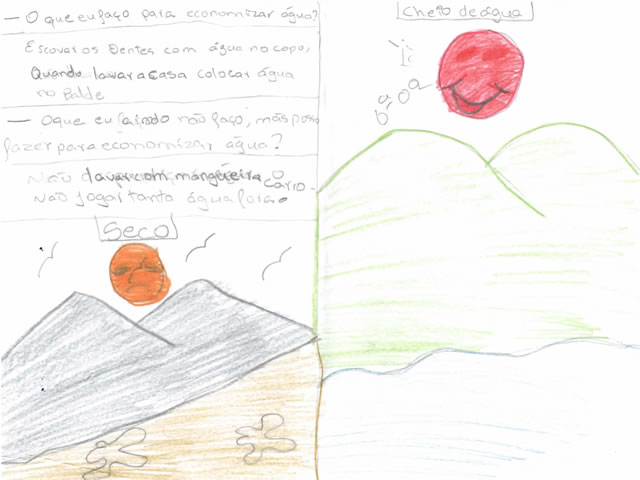 — O que eu faço para economizar água?
Escovar os Dentes com água no copo,
Quando lavar a casa colocar água
no Balde
— O que eu ainda não faço, mas posso
fazer para economizar água?
Não lavar com mangueira o carro.
Não jogar tanta água fora.
Seco
Cheio de água